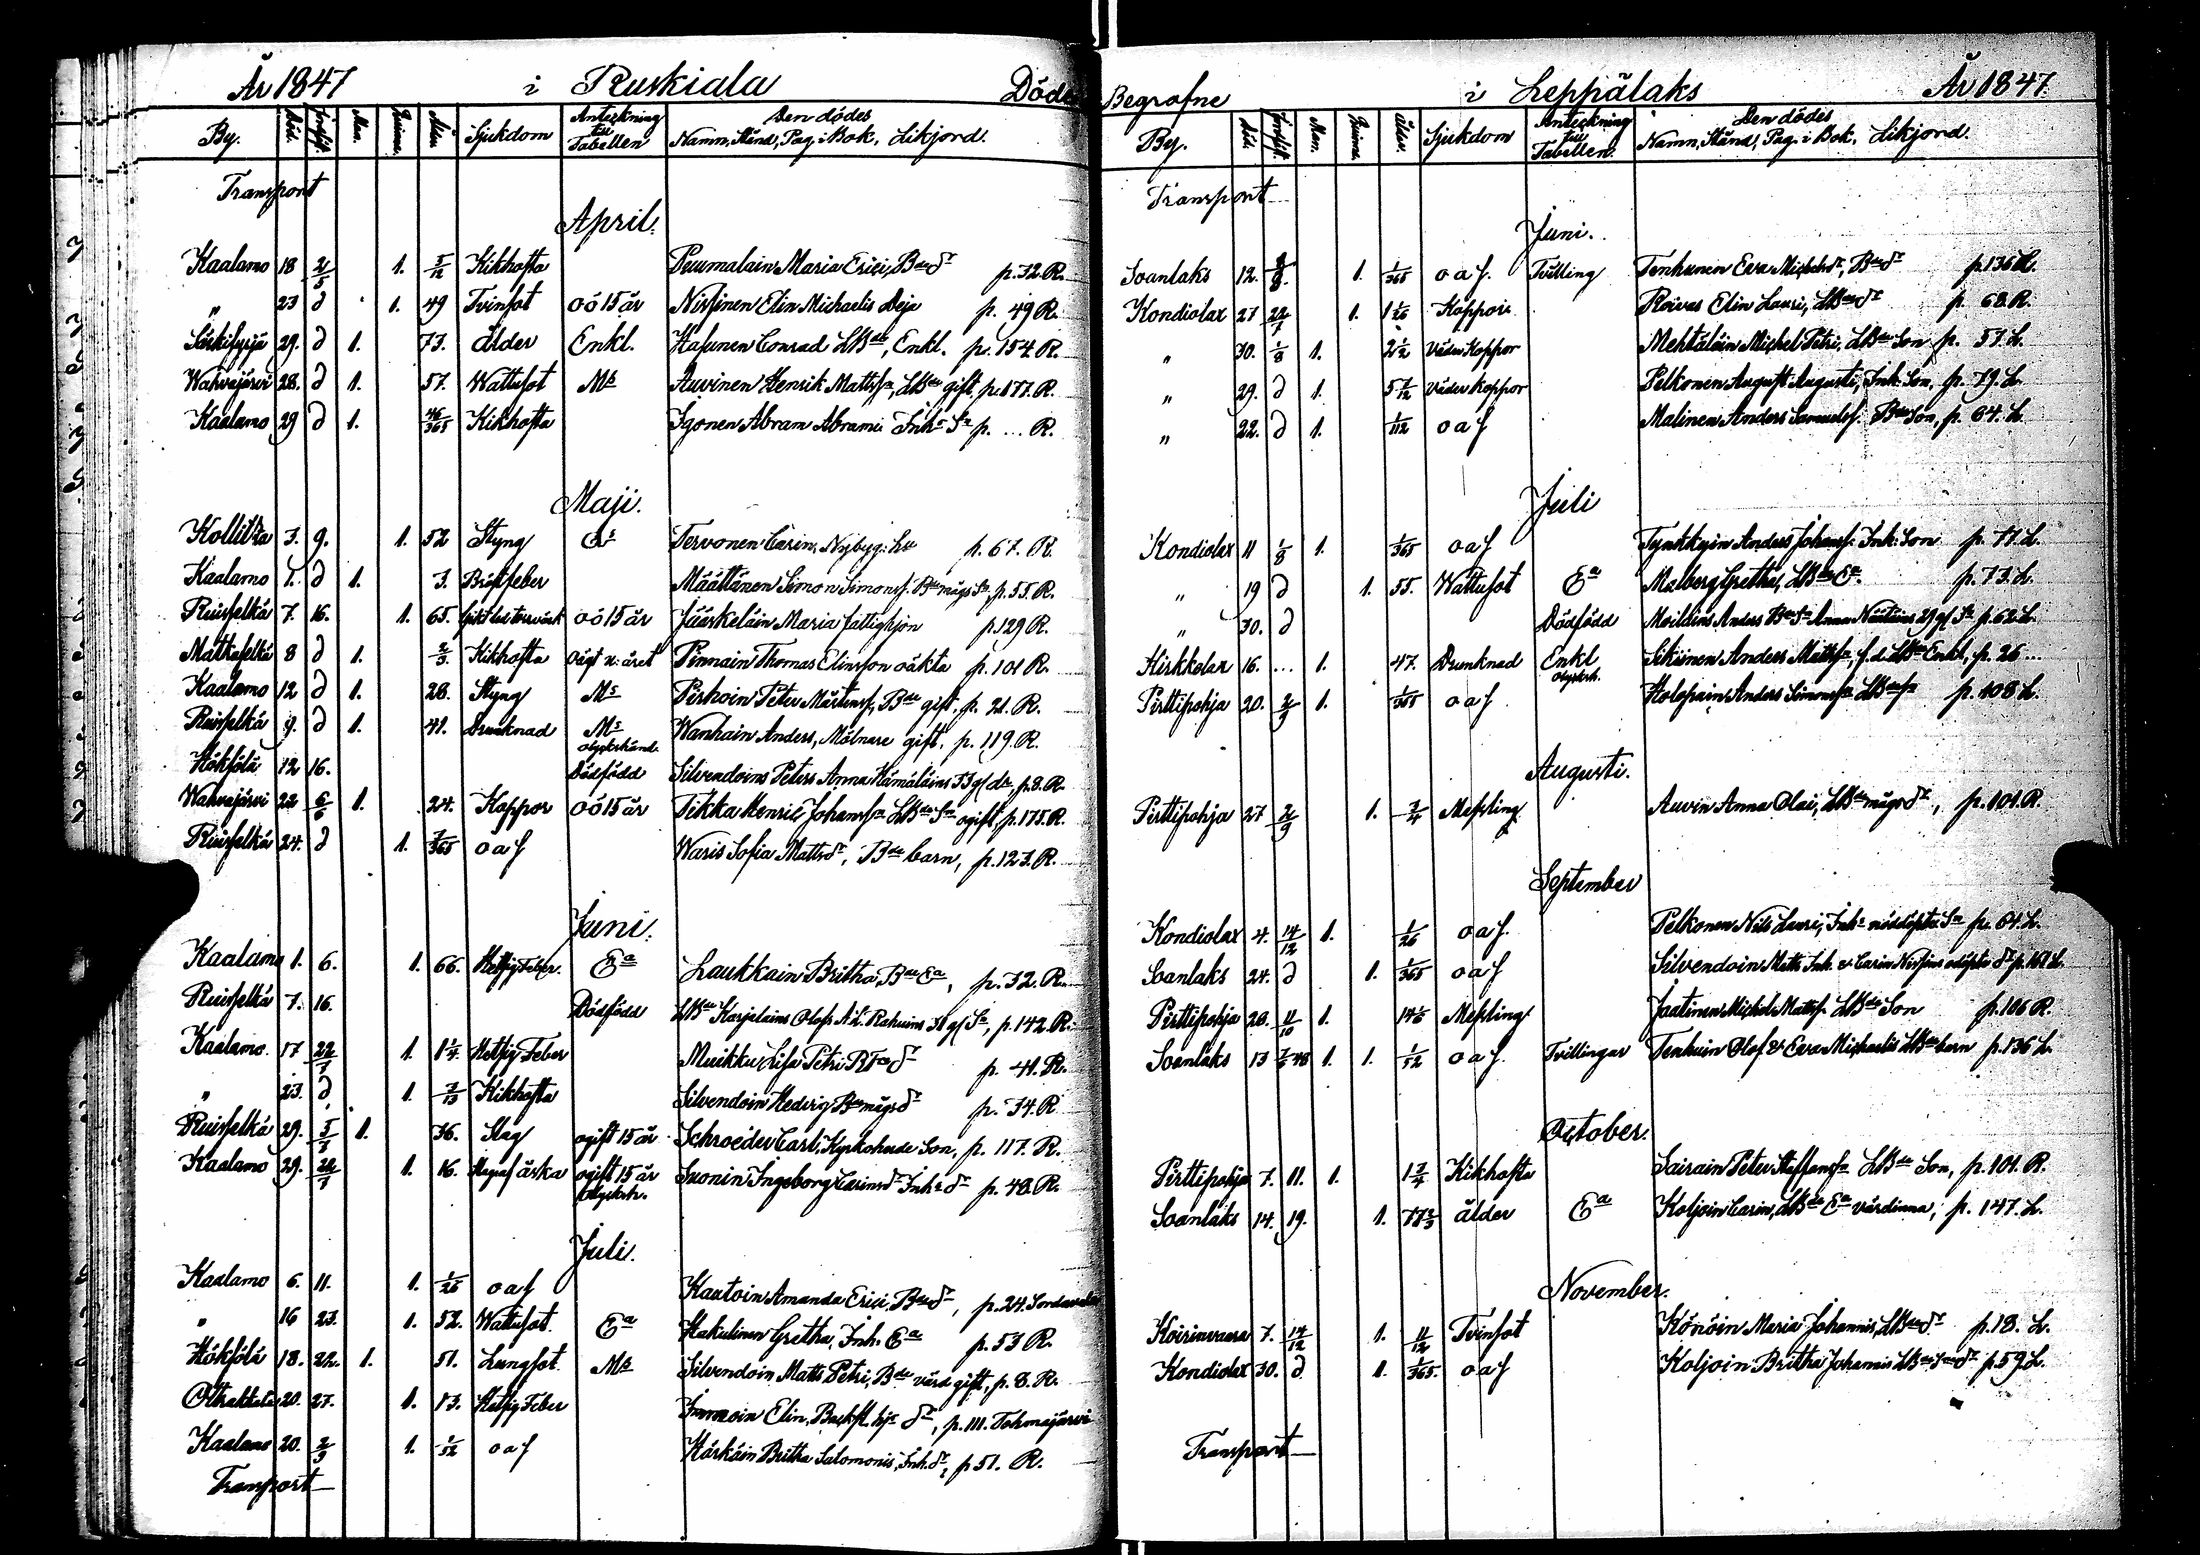 År 1847 i Ruskiala Döde
By. Död. Jordf. Man. Quinna. Ålder Sjukdom Anteckning till Tabellen Den dödes Namn, Stånd, Pag. i Bok. Likjord.
Transport
April.
Kaalamo 18 2/5 1. 5/12 Kikhosta Puumalain Maria Erici, Bde dr p. 32. R.
„ 23 d 1. 49 Tvinsot oö 15 år Nissinen Elin Michaelis Deja p. 49 R.
29. d 1. 73. ålder Enkl. Hasunen Conrad LBde, Enkl. p. 154 R.
Wahvajärvi 28. d 1. 57. Wattusot Ms Auvinen Henrik Mattss, LBde gift, p. 177. R.
Kaalamo 29 d 1. 46/365 Kikhosta Igonen Abram Abrami Inhs Sn p. ... R.
Maji.
Kollitza 3. 9. 1. 52 Styng Tervonen Carin, Nybyg. p. 67. R.
Kaalamo 7. d 1. 3. Bröstfeber Määttänen Simon Simonsf. Bde mågs Sn, p. 55. R.
Ruisselkä 7. 16. 1. 65. oö 15 år Jääskeläin Maria fattighjon p. 129 R.
Matkaselkä 8 d 1. 2/3. Kikhosta Pinnain Thomas Elinsson oäkta p. 101 R.
Kaalamo 12 d 1. 28. Styng Ms Pirhoin Peter Mårtensf, Bde gift, p. 21. R.
Ruisselkä 9. d 1. 41. Drunknad Ms olyckshänd. Wanhain Anders, Mölnare gift, p. 119. R.
Hökkölä 12 16. Dödfödd Silvendoins Peters Anna Hämäläins 33 g/ dr, p. 8. R.
Wahvajärvi 22 6/6 1. 24. Koppor oö 15 år Tikka Henric Johanss LBde Sn ogift, p. 175. R.
Ruisselkä 24. d 1. 7/365 o a f Waris Sofia Matts dr, Bde barn, p. 123. R.
Juni.
Kaalamo 1. 6. 1. 66. Hetsig Feber. Ea Laukkain Britha, Bde Ea, p. 32. R.
Ruisselkä 7. 16. Dödfödd LBde Karjalains Olofs A.L. Rahuins 31 g/ Sn, p. 142. R.
Kaalamo. 17 22/7 1. 1 1/4. Hetsig Feber Muikku Lisa Petri dr p. 41. R.
„ 23. d 1. 7/13 Kikhosta Silvendoin Hedvig Bde mågs dr p. 34. R
Ruisselkä 29. 5/7 1. 36. Slag ogift 15 år Schroeder Carl, Kyrkoherde Son, p. 117. R.
Kaalamo 29. 22/7 1. 16. åska ogift 15 år olycksh. Suonin Ingeborg Carins dr Inhs dr p. 48. R.
Juli.
Kaalamo 6. 11. 1. 1/26 o a f Kaatoin Amanda Erici, Bde dr, p. 24. Sordavala
„ 16 23. 1. 52. Wattusot. Ea Hakulinen Gretha, Inh. Ea p. 53 R.
Hökkölä 18. 22. 1. 51. Lungsot. Ms Silvendoin Matts Petri, Bde värd gift, p. 8. R.
Otrakkala 20. 27. 1. 13. Hetsig Feber Immoin Elin, Backst. hjs dr, p. 111. Tohmajärvi
Kaalamo 20. 2/9 1. 1/52 o a f Härkäin Britha Salomonis, Inh. dr, p 51. R.
Transport
Begrafne i Leppälaks År 1847.
By. Död. Jordf. Man. Quinna. Ålder. Sjukdom Anteckning till Tabellen. Den dödes Namn, Stånd, Pag. i Bok. Likjord.
Transport
Juni.
Soanlaks 12. 8/8. 1. 1/365 o a f. Tvilling Tenhunen Eva Michels dr, Bde dr p. 136 L.
Kondiolax 27 22/7 1. Koppor. Roivas Elin Lauri, LBde dr p. 68. R.
„ 30. 1/8 1. 2 1/2 Väder Koppor Mehtäläin Michel Petri, LBde Son p. 57. L.
„ 29. d 1. Väder Koppor Pelkonen August Augusti, Inh. Son, p. 79. L.
„ 22. d 1. o a f Malinen Anders Samuelsf. Bde Son, p. 64. L.
Juli
Kondiolax 11 1/8 1. 1/365 o a f Tynkkyin Anders Johansf. Inh. Son p. 77. L.
„ 19 d 1. 55. Wattusot Ea Malberg Gretha, LBde Ea. p. 73. L.
„ 30. d Dödfödd Moilains Anders Bde Sn Anna Näätäins 29 g/ Sn p. 62. L.
Kirkkolax 16. ... 1. 47. Drunknad Enkl olycksh. Sikiönen Anders Mattss, f.d. LBde Enkl, p. 26 ...
Pirttipohja 20. 2/9 1. 1/365 o a f Holopain Anders Simonss LBde Sn p. 108 L.
Augusti.
Pirttipohja 27 2/9 1. 3/4 Messling Auvin Anna Olai, LBde mågs dr, p. 101. R.
September
Kondiolax 4. 14/12 1. 1/26 o a f. Pelkonen Nils Lauri, Inhs Sn p. 64. L.
Soanlaks 24. d 1. 1/365 o a f Silvendoin Matts Inh. & Carin Nissins dr p. 161 L.
Pirttipohja 20. 11/10 1. Messling Jaatinen Michel Mattsf. LBde Son p. 106 R.
Soanlaks 13 1. 1. 1/12 o a f. Tvillingar Tenhuin Olof & Eva Michaelis LBde barn p. 136 L.
October.
Pirttipohja 7. 11. 1. 1 3/4 Kikhosta Sairain Peter Staffanss LBde Son, p. 101. R.
Soanlaks 14. 19. 1. 77 2/3 ålder Ea Koljoin Carin, LBde Ea värdinna, p. 147. L.
November.
Koirinvaara 7. 14/12 1. 11/12 Tvinsot Könöin Maria Johannis, LBde dr p. 18. L.
Kondiolax 30. d 1. 1/365. o a f Koljoin Britha Johannis LBde Sns dr p. 59 L.
Transport